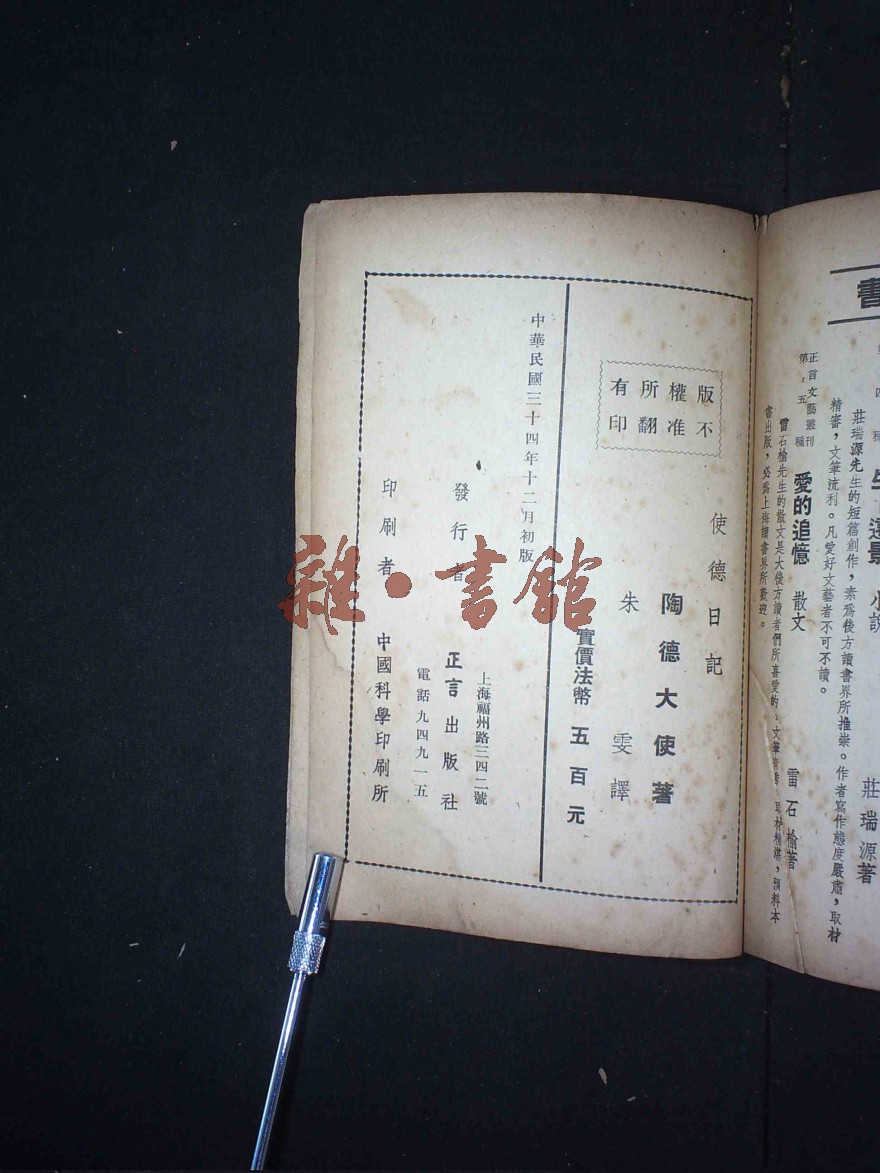 書
遠景 小說 莊瑞源著
莊瑞源先生的短篇創作，素爲後方讀書界所推崇。作者寫作態度嚴肅，取材
精審，文筆流利。凡愛好文藝者不可不讀。
正言文藝叢刊
第 五種 愛的追憶 散文 雷石榆著
雷石榆先生的散文是大後方讀者們所喜愛的，文筆 取材精湛，預料本
書出版，必爲上海讀書界所歡迎。
版權所有
不准翻印
使德日記
陶德大使著
朱雯譯
實價法幣 五百元
中華民國三十四年十二月初版
上海福州路三四二號
發行者 正言出版社
電話九四九一五
印刷者 中國科學印刷所
雜·書館